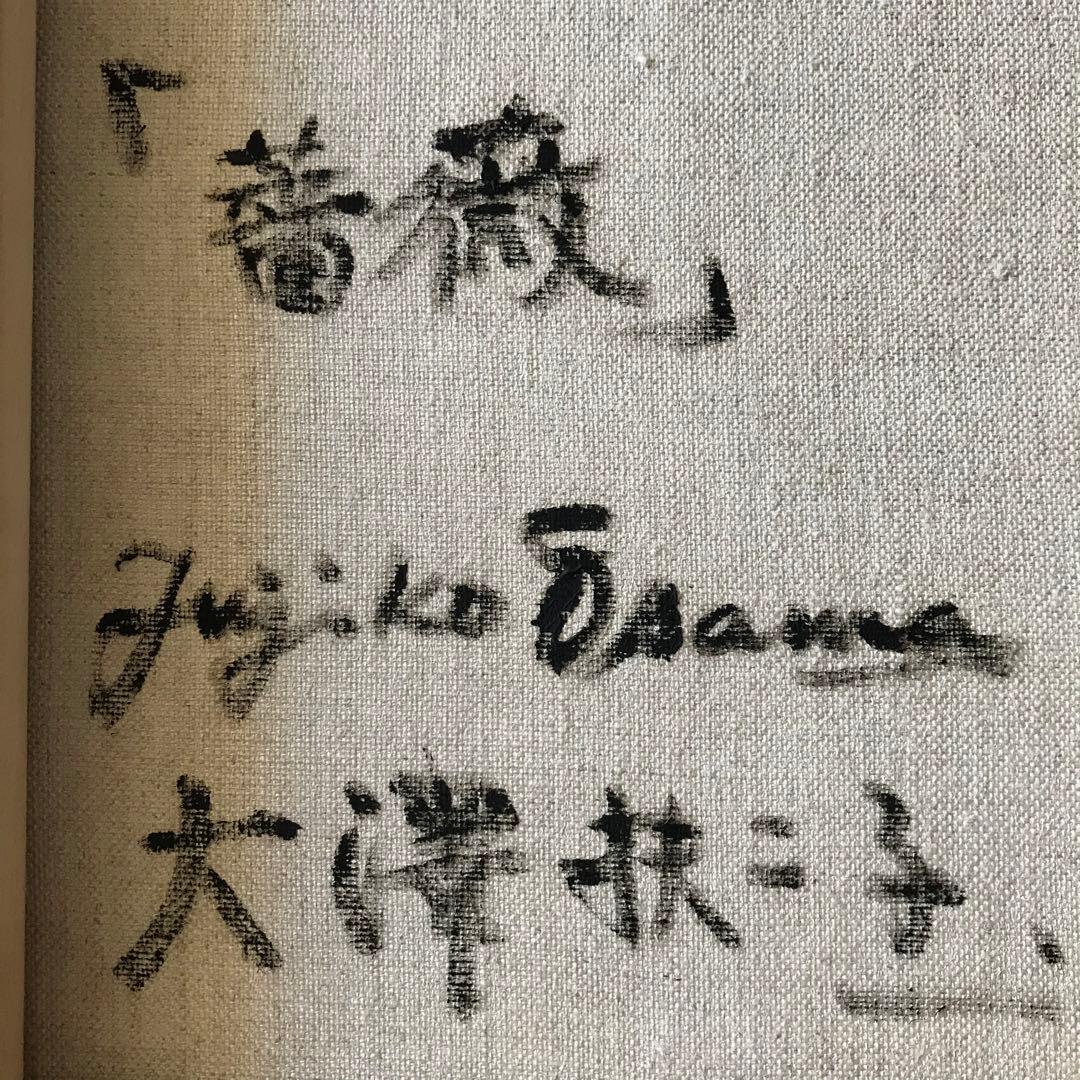 「薔薇」
Fujiko Ōsawa
大澤扶二子.